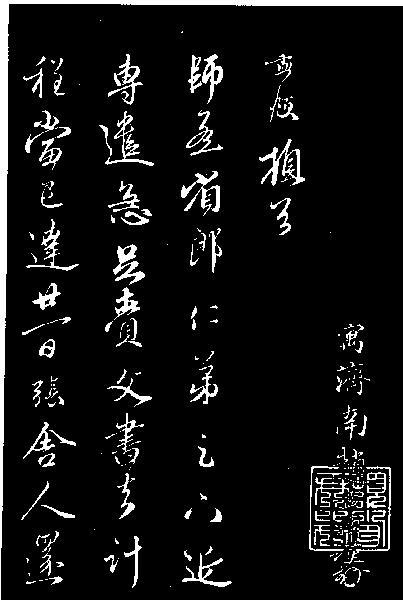 寓濟南趙
孟頫頓首
師孟省郎仁弟足下近
專遣急足賫文書去計
程當已達廿一日張舍人還